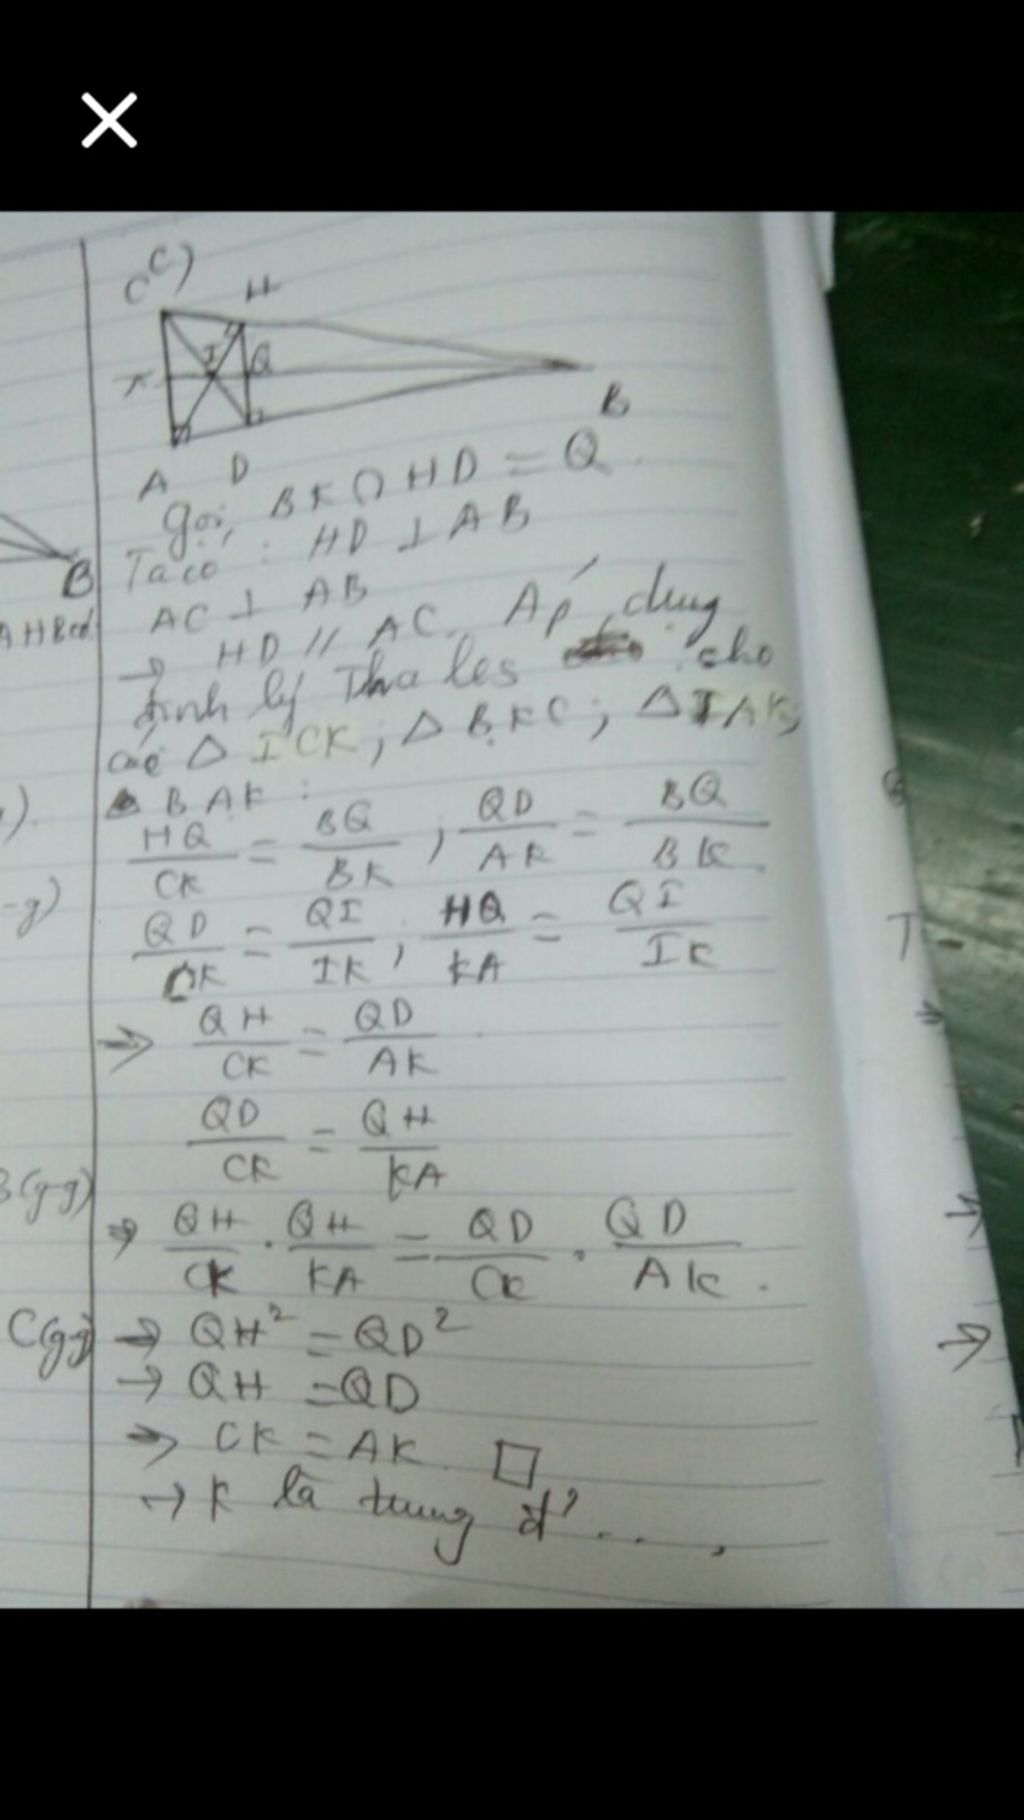 c)
C H
I Q
K
B
A D
gọi BK ∩ HD = Q
Ta có : HD ⊥ AB
B
AHB
AC ⊥ AB
→ HD // AC. Áp dụng
định lý Tha les cho
các Δ ICK ; Δ BKC ; Δ IAK;
Δ BAK :
HQ/CK = BQ/BK ; QD/AK = BQ/BK
-g)
QD/CK = QI/IK ; HQ/KA = QI/IK
⇒ QH/CK = QD/AK
QD/CK = QH/KA
(g-g)
⇒ QH/CK . QH/KA = QD/CK . QD/AK .
C(g-g)
→ QH² = QD²
→ QH = QD
→ CK = AK □
→ K là trung đ' ....,